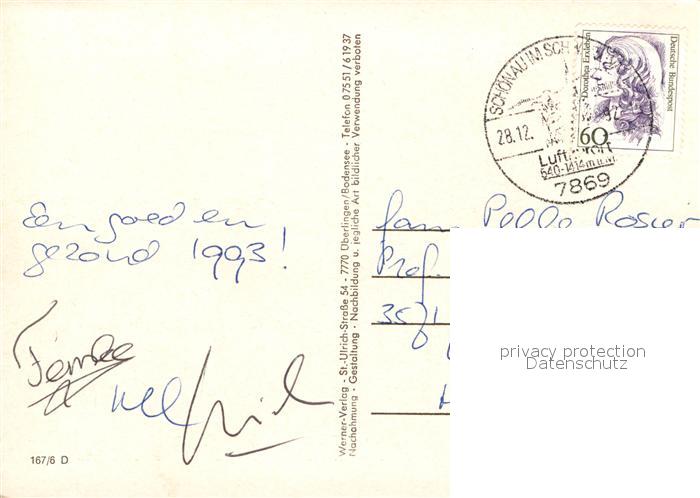 Een goed en
gezond 1993!
Femke
167/6 D
Werner-Verlag - St.-Ulrich-Straße 54 - 7770 Überlingen/Bodensee - Telefon 07551/61937
Nachahmung - Gestaltung - Nachbildung u. jegliche Art bildlicher Verwendung verboten
SCHÖNAU IM SCH
28.12.
92
Luft
640-1414 m ü.M.
7869
Dorothea Erxleben
Deutsche Bundespost
60
Fam. Pelle
Prof.
privacy protection
Datenschutz